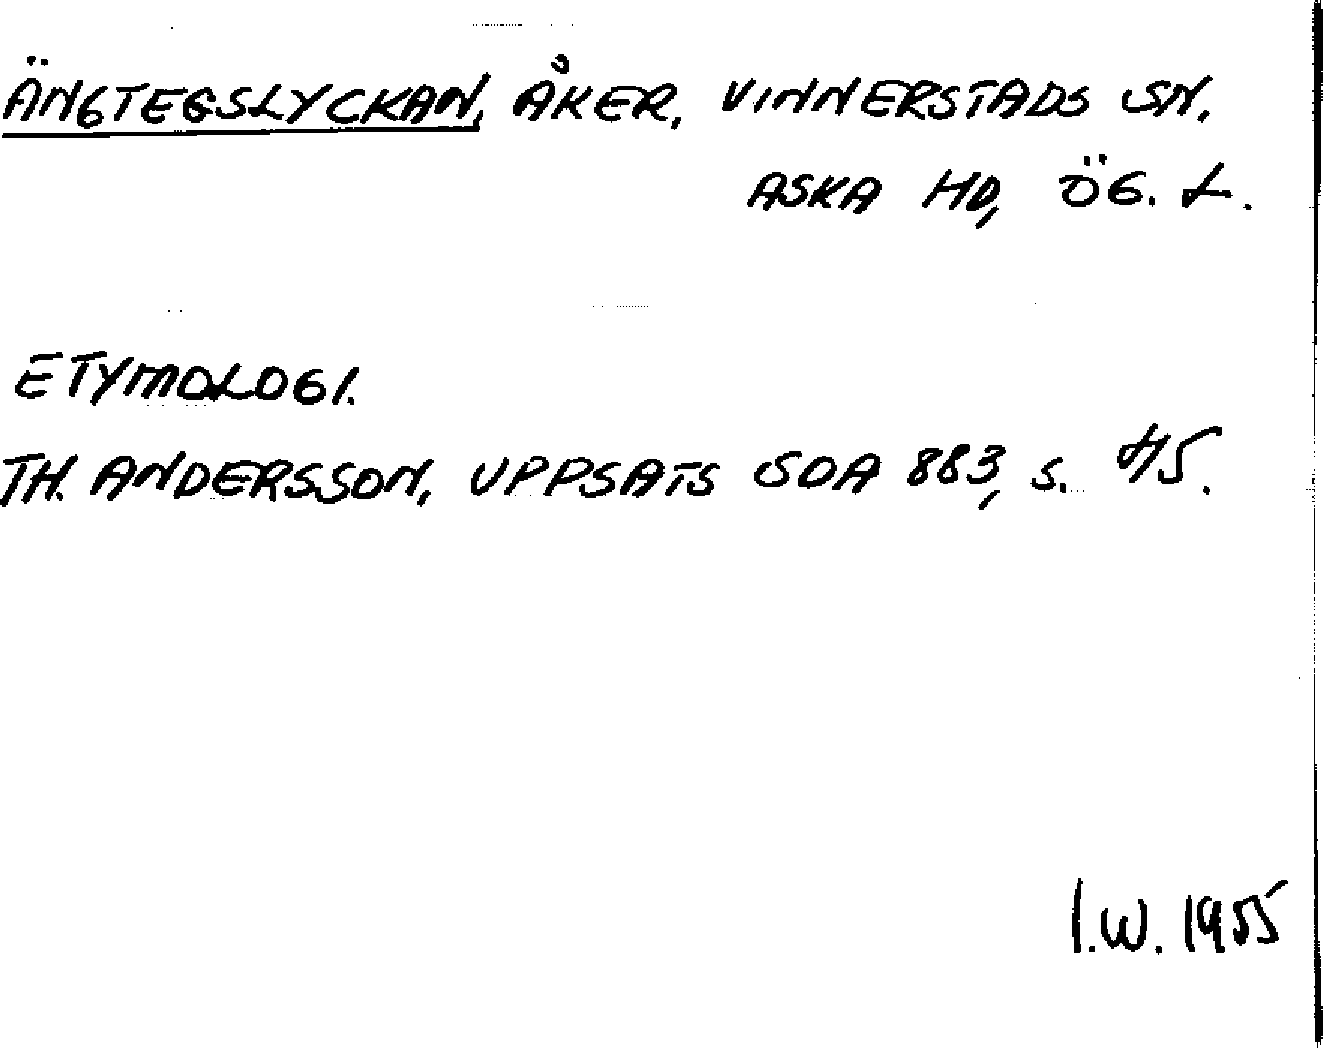 ÄNGTEGSLYCKAN, ÅKER, VINNERSTADS SN.
ASKA HD, ÖG. L.
ETYMOLOGI.
TH. ANDERSSON, UPPSATS SOA 883, S. 45.
I.W. 1955